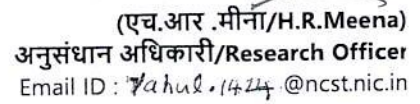 (एच.आर .मीना/H.R.Meena)
अनुसंधान अधिकारी/Research Officer
Email ID : @ncst.nic.in